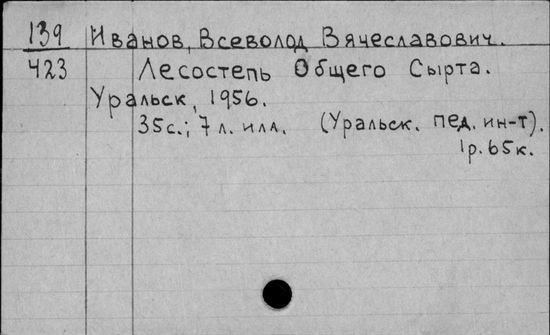 139 Иванов, Всеволод Вячеславович.
423 Лесостепь Общего Сырта.
Уральск, 1956.
35с.; 7 л. илл. (Уральск. пед. ин-т).
1р. 65к.